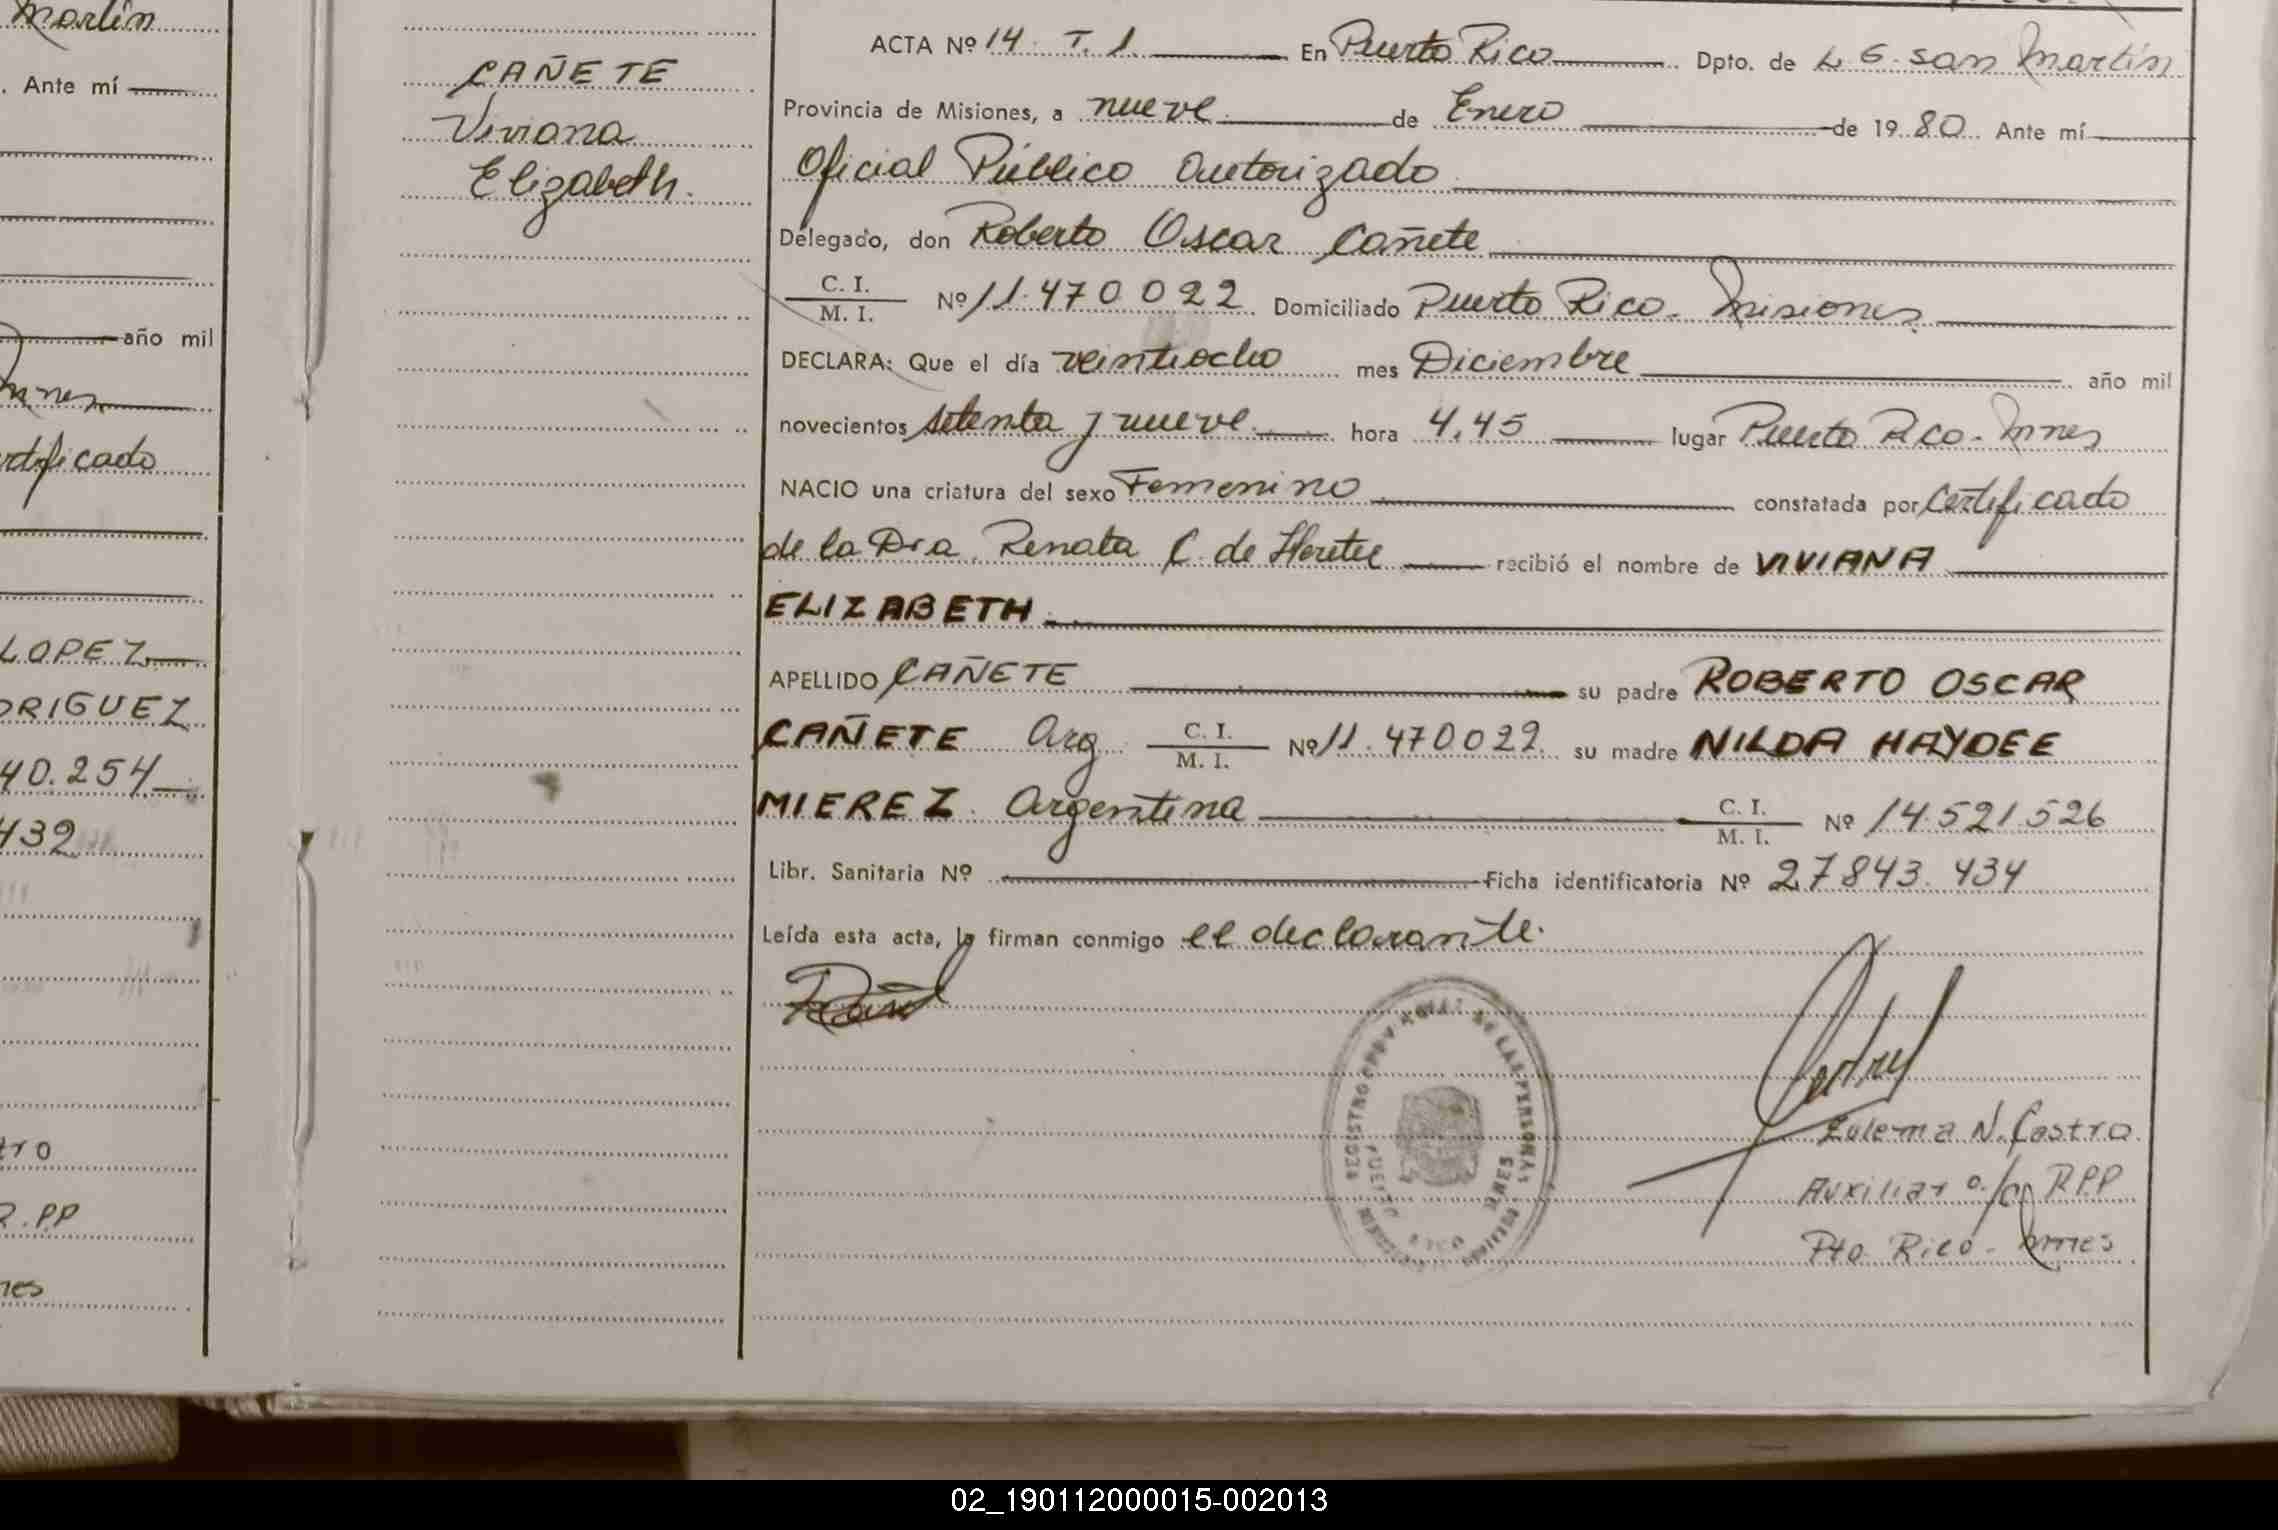 Martín
. Ante mí
año mil
nnes
rtificado
LOPEZ
ORIGUEZ
40.254
432
tro
R.PP
nes
CAÑETE
Viviana
Elizabeth.
ACTA Nº 14. T. 1. En Puerto Rico Dpto. de L G. San Martín
Provincia de Misiones, a nueve de Enero de 1980. Ante mí
Oficial Público Autorizado
Delegado, don Roberto Oscar Cañete
C. I.
M. I. Nº 11.470.022 Domiciliado Puerto Rico. Misiones
DECLARA: Que el día veintiocho mes Diciembre año mil
novecientos setenta y nueve hora 4,45 lugar Puerto Rico. Mnes
NACIO una criatura del sexo Femenino constatada por Certificado
de la Dra. Renata C. de recibió el nombre de VIVIANA
ELIZABETH
APELLIDO CAÑETE su padre ROBERTO OSCAR
CAÑETE Arg C. I. M. I. Nº 11.470022 su madre NILDA HAYDEE
MIEREZ. Argentina C. I. M. I. Nº 14.521.526
Libr. Sanitaria Nº Ficha identificatoria Nº 27843.434
Leída esta acta, la firman conmigo el declarante.
REGISTRO PROV DE LAS PERSONAS
PUERTO RICO MNES
Zulema N. Castro
Auxiliar a/c R.P.P
Pto. Rico - Mnes
02_190112000015-002013